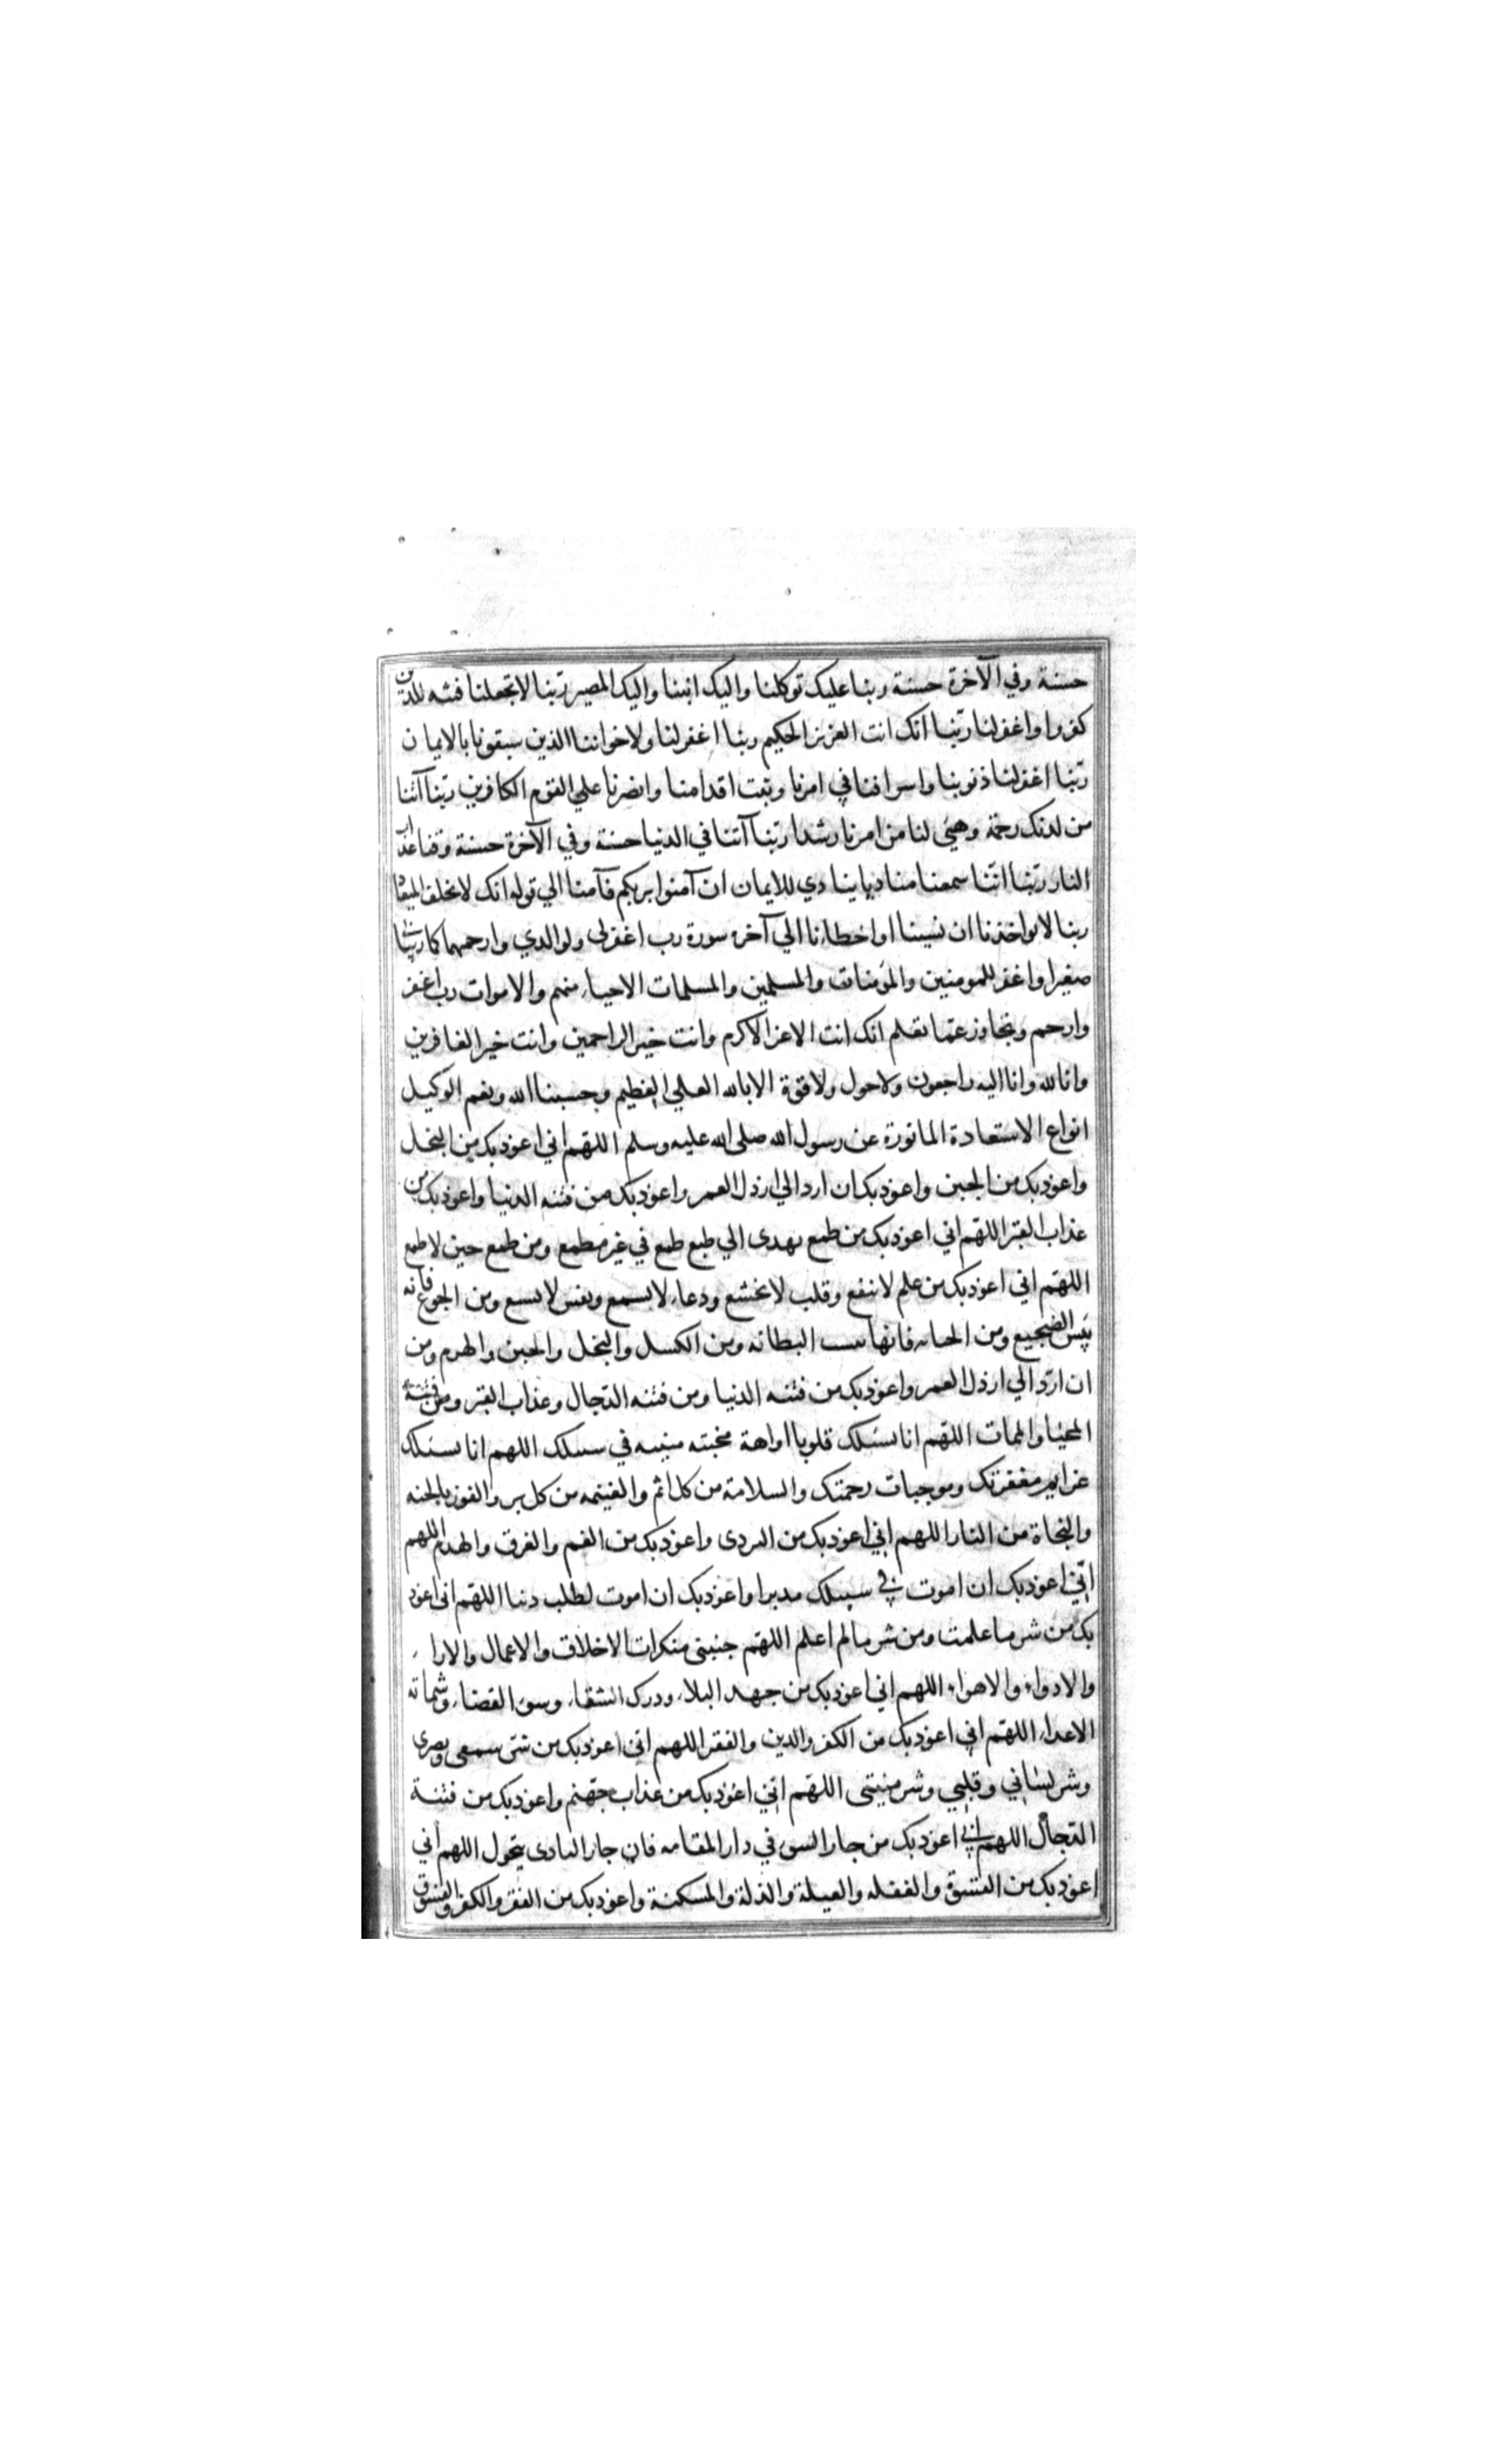 حسنة وفي الآخرة حسنة ربنا عليك توكلنا واليك انبنا واليك المصير ربنا لا تجعلنا فتنه للذين
كفروا واغفر لنا ربّنا انك انت العزيز الحكيم ربنا اغفر لنا ولاخواننا الذين سبقونا بالايمان
ربّنا اغفر لنا ذنوبنا واسرافنا في امرنا وثبت اقدامنا وانصرنا علي القوم الكافرين ربّنا آتنا
من لدنك رحمة وهيئ لنا من امرنا رشدا ربّنا آتنا في الدنيا حسنة وفي الآخرة حسنة وقنا عذاب
النار ربّنا انّنا سمعنا مناديا ينادي للايمان ان آمنوا بربكم فآمنا الي قوله انك لا تخلف الميعاد
ربنا لا تواخذنا ان نسينا او اخطانا الي آخره سورة رب اغفر لي ولوالدي وارحمهما كما ربياني
صغيرا واغفر للمومنين والمؤمنات والمسلمين والمسلمات الاحياء منهم والاموات رب اغفر
وارحم وتجاوز عمّا تعلم انك انت الاعز الاكرم وانت خير الراحمين وانت خير الغافرين
وانا لله وانا اليه راجعون ولا حول ولا قوة الا بالله العلي العظيم وحسبنا الله ونعم الوكيل
انواع الاستعاذة الماثورة عن رسول الله صلى الله عليه وسلم اللهّم اني اعوذ بك من البخل
واعوذ بك من الجبن واعوذ بك ان ارد الي ارذل العمر واعوذ بك من فتنه الدنيا واعوذ بك من
عذاب القبر اللهّم اني اعوذ بك من طمع يهدى الي طبع طمع في غير مطمع ومن طمع حين لا طمع
اللهّم اني اعوذ بك من علم لا ينفع وقلب لا يخشع ودعاء لا يسمع ونفس لا تشبع ومن الجوع فانه
بئس الضجيع ومن الخيانه فانها بئست البطانه ومن الكسل والبخل والجبن والهرم ومن
ان ارد الي ارذل العمر واعوذ بك من فتنه الدنيا ومن فتنه الدّجال وعذاب القبر ومن فتنة
المحيا والممات اللهّم انا نسئلك قلوبا اواهة مخبته منيبه في سبيلك اللهم انا نسئلك
عزايم مغفرتك وموجبات رحمتك والسلامة من كل اثم والغنيمه من كل بر والفوز بالجنه
والنجاة من النار اللهم اني اعوذ بك من الردى واعوذ بك من الغم والغرق والهدم اللهم
انّي اعوذ بك ان اموت في سبيلك مدبرا واعوذ بك ان اموت لطلب دنيا اللهّم اني اعوذ
بك من شر ما علمت ومن شر ما لم اعلم اللهّم جنبني منكرات الاخلاق والاعمال والاراء
والادواء والاهواء اللهم اني اعوذ بك من جهد البلاء ودرك الشقاء وسوء القضاء وشماته
الاعداء اللهّم اني اعوذ بك من الكفر والدين والفقر اللهم اني اعوذ بك من شر سمعي وبصرى
وشر لساني وقلبي وشر منيتى اللهّم انّي اعوذ بك من عذاب جهّنم واعوذ بك من فتنة
الدّجال اللهم اني اعوذ بك من جار السوء في دار المقامه فان جار البادى يتحول اللهم اني
اعوذ بك من القسوة والغفله والعيلة والذلة والمسكنة واعوذ بك من الفقر والكفر والفسوق